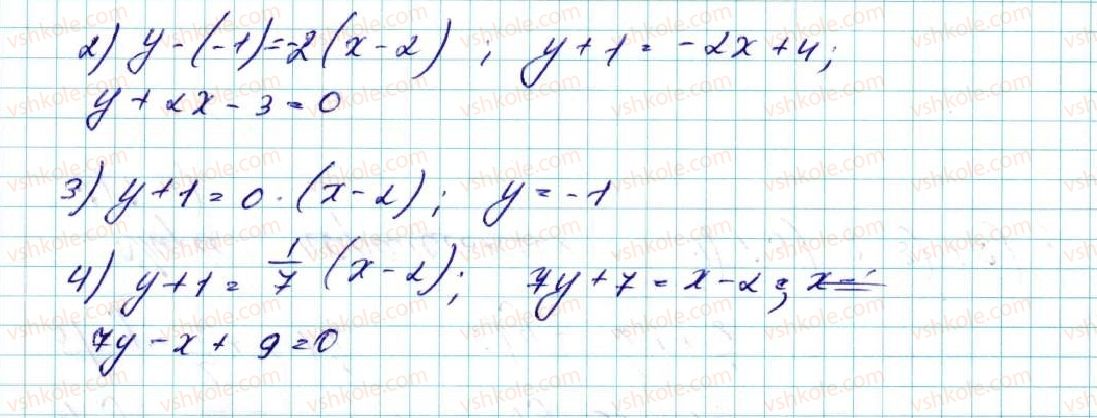 2) y - (-1) = -2(x - 2) ; y + 1 = -2x + 4;
y + 2x - 3 = 0
3) y + 1 = 0 · (x - 2); y = -1
4) y + 1 = 1/7 (x - 2); 7y + 7 = x - 2;
7y - x + 9 = 0